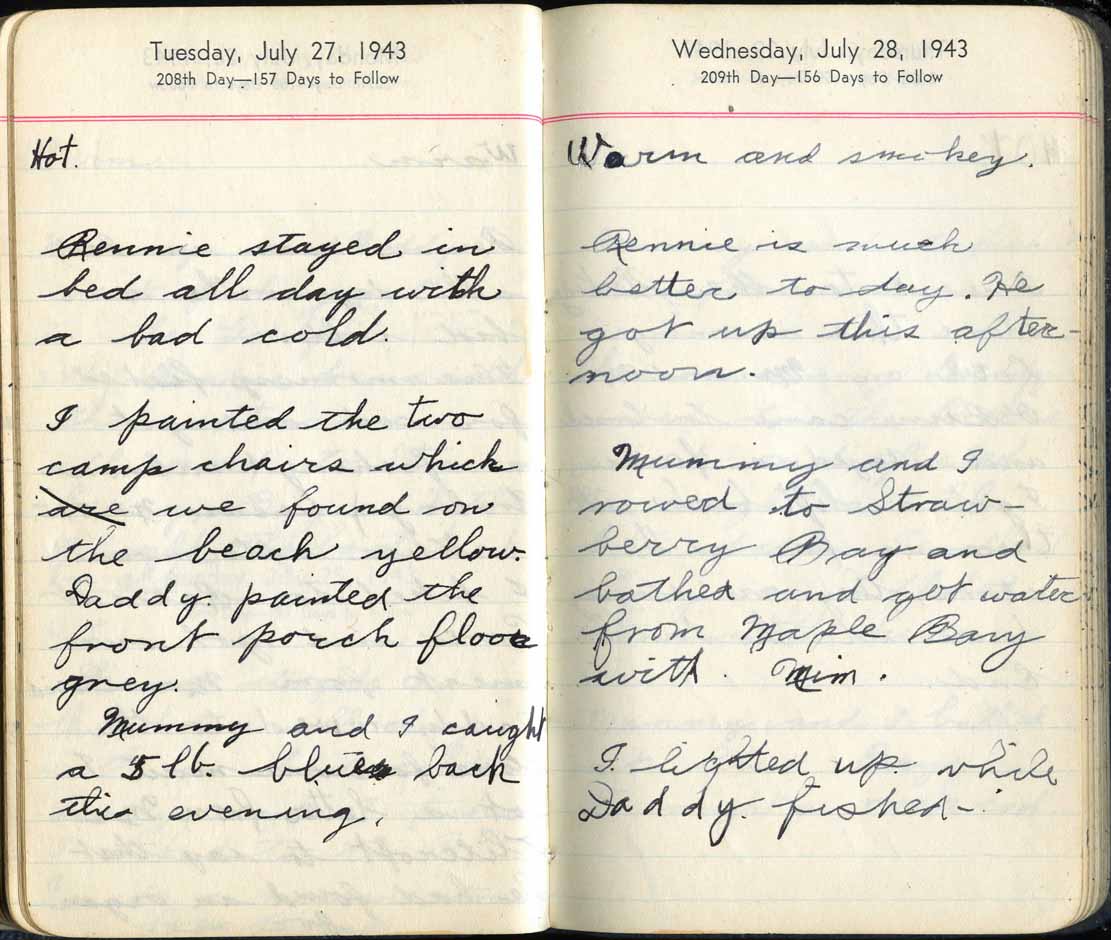 Tuesday, July 27, 1943
208th Day—157 Days to Follow
Hot.
Rennie stayed in
bed all day with
a bad cold.
I painted the two
camp chairs which
are we found on
the beach yellow.
Daddy painted the
front porch floor
grey.
Mummy and I caught
a 5 lb. blue back
this evening.
Wednesday, July 28, 1943
209th Day—156 Days to Follow
Warm and smokey.
Rennie is much
better to day. He
got up this after-
noon.
Mummy and I
rowed to Straw-
berry Bay and
bathed and got water
from Maple Bay
with Mim.
I lighted up while
Daddy fished.